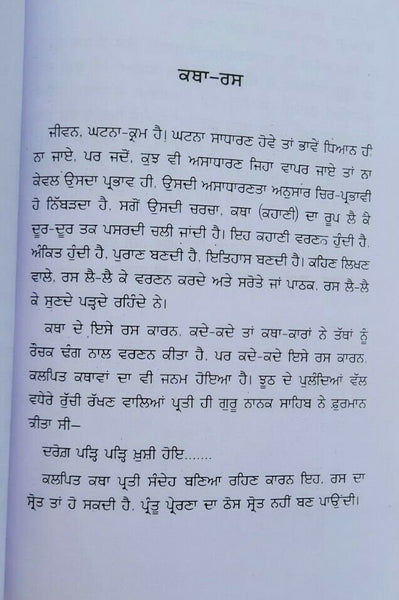 ਕਥਾ-ਰਸ
ਜੀਵਨ, ਘਟਨਾ-ਕ੍ਰਮ ਹੈ। ਘਟਨਾ ਸਾਧਾਰਣ ਹੋਵੇ ਤਾਂ ਭਾਵੇਂ ਧਿਆਨ ਹੀ
ਨਾ ਜਾਏ, ਪਰ ਜਦੋਂ, ਕੁਝ ਵੀ ਅਸਾਧਾਰਣ ਜਿਹਾ ਵਾਪਰ ਜਾਏ ਤਾਂ ਨਾ
ਕੇਵਲ ਉਸਦਾ ਪ੍ਰਭਾਵ ਹੀ, ਉਸਦੀ ਅਸਾਧਾਰਣਤਾ ਅਨੁਸਾਰ ਚਿਰ-ਪ੍ਰਭਾਵੀ
ਹੋ ਨਿੱਬੜਦਾ ਹੈ, ਸਗੋਂ ਉਸਦੀ ਚਰਚਾ, ਕਥਾ (ਕਹਾਣੀ) ਦਾ ਰੂਪ ਲੈ ਕੇ
ਦੂਰ-ਦੂਰ ਤਕ ਪਸਰਦੀ ਚਲੀ ਜਾਂਦੀ ਹੈ। ਇਹ ਕਹਾਣੀ ਵਰਣਨ ਹੁੰਦੀ ਹੈ,
ਅੰਕਿਤ ਹੁੰਦੀ ਹੈ, ਪੁਰਾਣ ਬਣਦੀ ਹੈ, ਇਤਿਹਾਸ ਬਣਦੀ ਹੈ। ਕਹਿਣ ਲਿਖਣ
ਵਾਲੇ, ਰਸ ਲੈ-ਲੈ ਕੇ ਵਰਣਨ ਕਰਦੇ ਅਤੇ ਸਰੋਤੇ ਜਾਂ ਪਾਠਕ, ਰਸ ਲੈ-ਲੈ
ਕੇ ਸੁਣਦੇ ਪੜ੍ਹਦੇ ਰਹਿੰਦੇ ਨੇ।
ਕਥਾ ਦੇ ਇਸੇ ਰਸ ਕਾਰਨ, ਕਦੇ-ਕਦੇ ਤਾਂ ਕਥਾ-ਕਾਰਾਂ ਨੇ ਤੱਥਾਂ ਨੂੰ
ਰੌਚਕ ਢੰਗ ਨਾਲ ਵਰਣਨ ਕੀਤਾ ਹੈ, ਪਰ ਕਦੇ-ਕਦੇ ਇਸੇ ਰਸ ਕਾਰਨ,
ਕਲਪਿਤ ਕਥਾਵਾਂ ਦਾ ਵੀ ਜਨਮ ਹੋਇਆ ਹੈ। ਝੂਠ ਦੇ ਪੁਲੰਦਿਆਂ ਵੱਲ
ਵਧੇਰੇ ਰੁੱਚੀ ਰੱਖਣ ਵਾਲਿਆਂ ਪ੍ਰਤੀ ਹੀ ਗੁਰੂ ਨਾਨਕ ਸਾਹਿਬ ਨੇ ਫ਼ੁਰਮਾਨ
ਕੀਤਾ ਸੀ—
ਦਰੋਗ਼ ਪੜ੍ਹਿ ਪੜ੍ਹਿ ਖ਼ੁਸ਼ੀ ਹੋਇ.......
ਕਲਪਿਤ ਕਥਾ ਪ੍ਰਤੀ ਸੰਦੇਹ ਬਣਿਆ ਰਹਿਣ ਕਾਰਨ ਇਹ, ਰਸ ਦਾ
ਸ੍ਰੋਤ ਤਾਂ ਹੋ ਸਕਦੀ ਹੈ, ਪ੍ਰੰਤੂ ਪ੍ਰੇਰਣਾ ਦਾ ਠੋਸ ਸ੍ਰੋਤ ਨਹੀਂ ਬਣ ਪਾਉਂਦੀ।